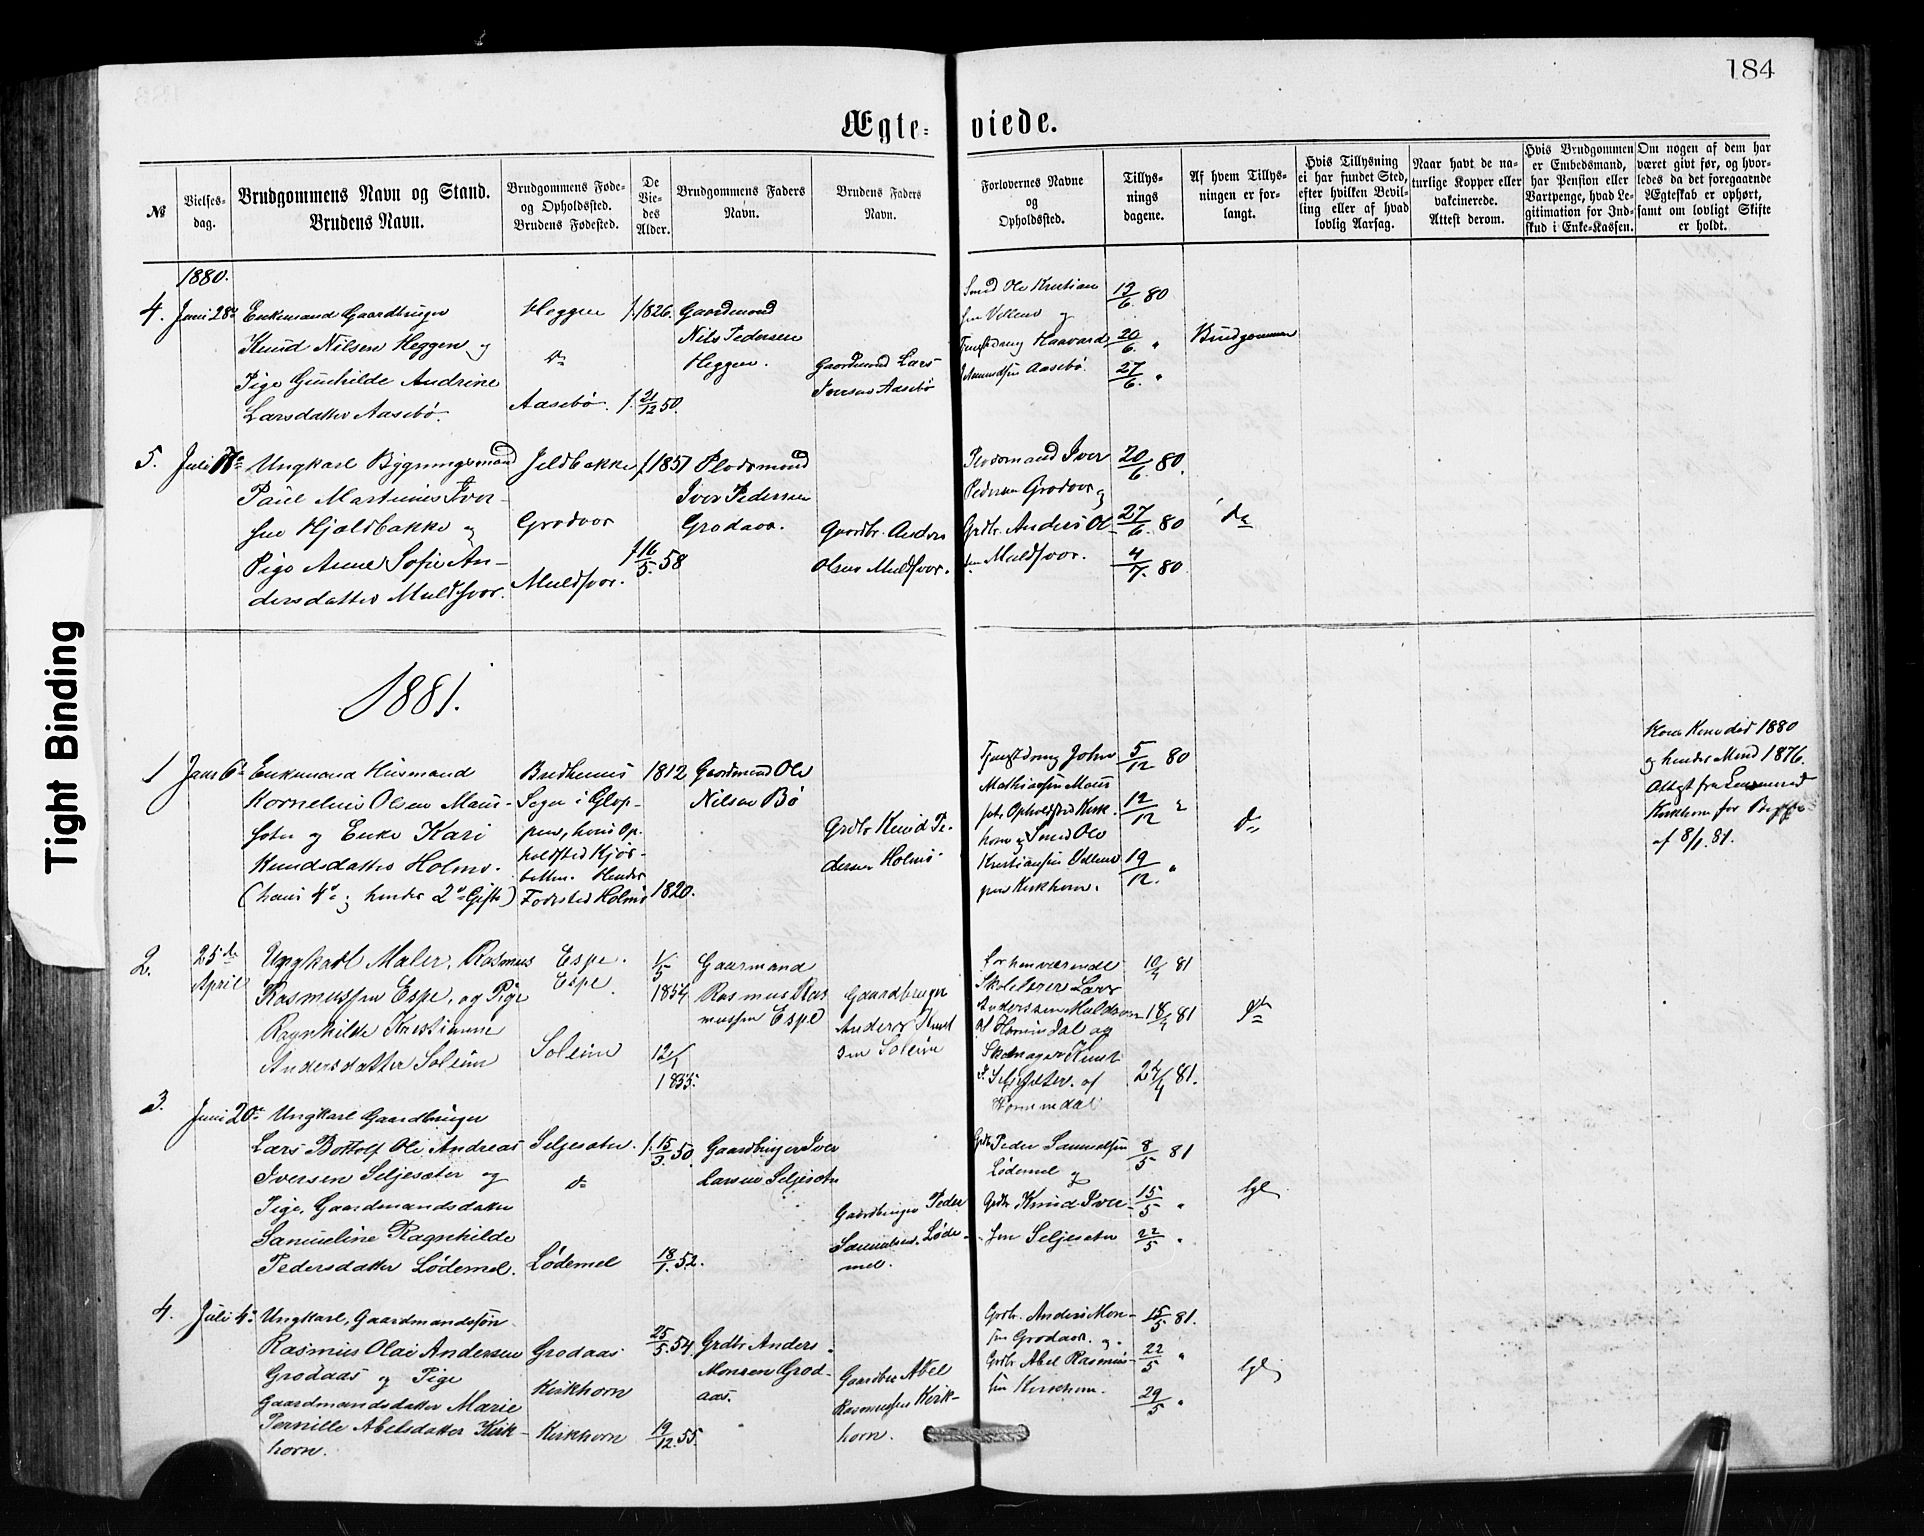 184
Ægte- viede.
№
Vielses-
dag.
Brudgommens Navn og Stand.
Brudens Navn.
Brudgommens Føde-
og Opholdssted.
Brudens Fødested.
De
Vie-
des
Alder.
Brudgommens Faders
Navn.
Brudens Faders
Navn.
Forlovernes Navne
og
Opholdssted.
Tillys-
nings
dagene.
Af hvem Tillys-
ningen er for-
langt.
Hvis Tillysning
ei har fundet Sted,
efter hvilken Bevil-
ling eller af hvad
lovlig Aarsag.
Naar havt de na-
turlige Kopper eller
vakcinerede.
Attest derom.
Hvis Brudgommen
er Embedsmand,
har Pension eller
Vartpenge, hvad Le-
gitimation for Ind-
skud i Enke-Kassen.
Om nogen af dem har
været givt før, og hvor-
ledes da det foregaaende
Ægteskab er ophørt,
samt om lovligt Skifte
er holdt.
1880.
4. Juni 28de
Enkemand Gaardbruger
Knud Nilsen Heggen og
Pige Gunhilde Andrine
Larsdatter Aasebø.
Heggen
do
Aasebø.
f. 1826.
f. 21/12 50.
Gaardmand
Nils Pedersen
Heggen.
Gaardmand Lars
Iversen Aasebø
Smed Ole Kristian-
sen Vellene og
Tjenestdreng Haavard
Aasebø.
13/6 80
20/6 "
27/6 "
Brudgommen
5. Juli
Ungkarl Bygningsmand
Paul Martinus Iver-
sen Hjaldbakke og
Pige Anne Sofie An-
dersdatter Muldsvor.
Jeldbakke
Grodvor
Muldsvor.
f. 1857
f. 16/5 58
Pladsmand
Iver Pedersen
Grodaas.
Gaardbr. Anders
Olsen Muldsvor.
Pladsmand Iver
Pedersen Grodvor og
Grdbr. Anders Ol-
sen Muldsvor.
20/6 80
27/6 80
4/7 80
do
1881.
1 Janr 6te
Enkemand Husmand
Kornelius Olsen Maur-
seter og Enke Kari
Knudsdatter Holme.
(hans 4de og hendes 2det Gifte)
Bredheims
Sogn i Glop-
pen, hans Op-
holdsted Kjøs-
botten. Hendes
Fødested Holme
1812
1820.
Gaardmand Ole
Nilsen Bø
Grdbr Knud Pe-
dersen Holme
Tjenestdreng Johan
Mathiassen Maur-
set, Opholdssted Kirk-
horn og Smed Ole
Kristiansen Vellene
paa Kirkhorn.
5/12 80
12/12 "
19/12 "
do
Hans Kone død 1880
og hendes Mand 1876.
Attest fra Lensmand
Kirkhorn for
af 8/1 81.
2. 25de
April
Ungkarl Maler, Rasmus
Rasmussen Espe, og Pige
Ragnhilde Kristianne
Andersdatter Soleim
Espe.
Espe
Soleim
1/5
1854
12/1
1855.
Gaarmand
Rasmus Ras
mussen Espe
Gaardbruger
Anders Knut
sen Soleim
forhenværende
Skolelærer Lars
Anderssen Muldsvor
af Hornindal og
Skomager Knut
af
Hornindal
10/4 81
18/4 81
24/4 81.
do
3. Juni 20de
Ungkarl Gaardbruger
Lars Bottolf Ole Andreas
Iversen Seljesæter og
Pige, Gaardmandsdatter
Samueline Ragnhilde
Pedersdatter Lødemel.
Seljesæter.
do
Lødemel
f. 15/3. 50.
18/1. 52.
Gaardbruger Iver
Larsen Seljesæter
Gaardbruger Peder
Samuelsen Løde-
mel.
Grdbr Peder Samuelsen
Lødemel og
Grdbr Knud Iver-
sen Seljesæter
8/5 81
15/5 "
22/5 "
lgl
4. Juli 4de
Ungkarl, Gaardmandssøn
Rasmus Olai Andersen
Grodaas og Pige
Gaardmandsdatter Marie
Pernille Abelsdatter Kirk-
horn.
Grodaas
Kirkhorn
Kirkhorn
25/5. 54.
19/12. 55.
Grdbr Anders
Monsen Grod-
aas.
Gaardbr Abel
Rasmussen Kirk-
horn.
Grdbr. Anders Mon-
sen Grodaas. og
Grdbr Abel Rasmus-
sen Kirkhorn.
15/5 81.
22/5 "
29/5 "
lgl
Tight Binding